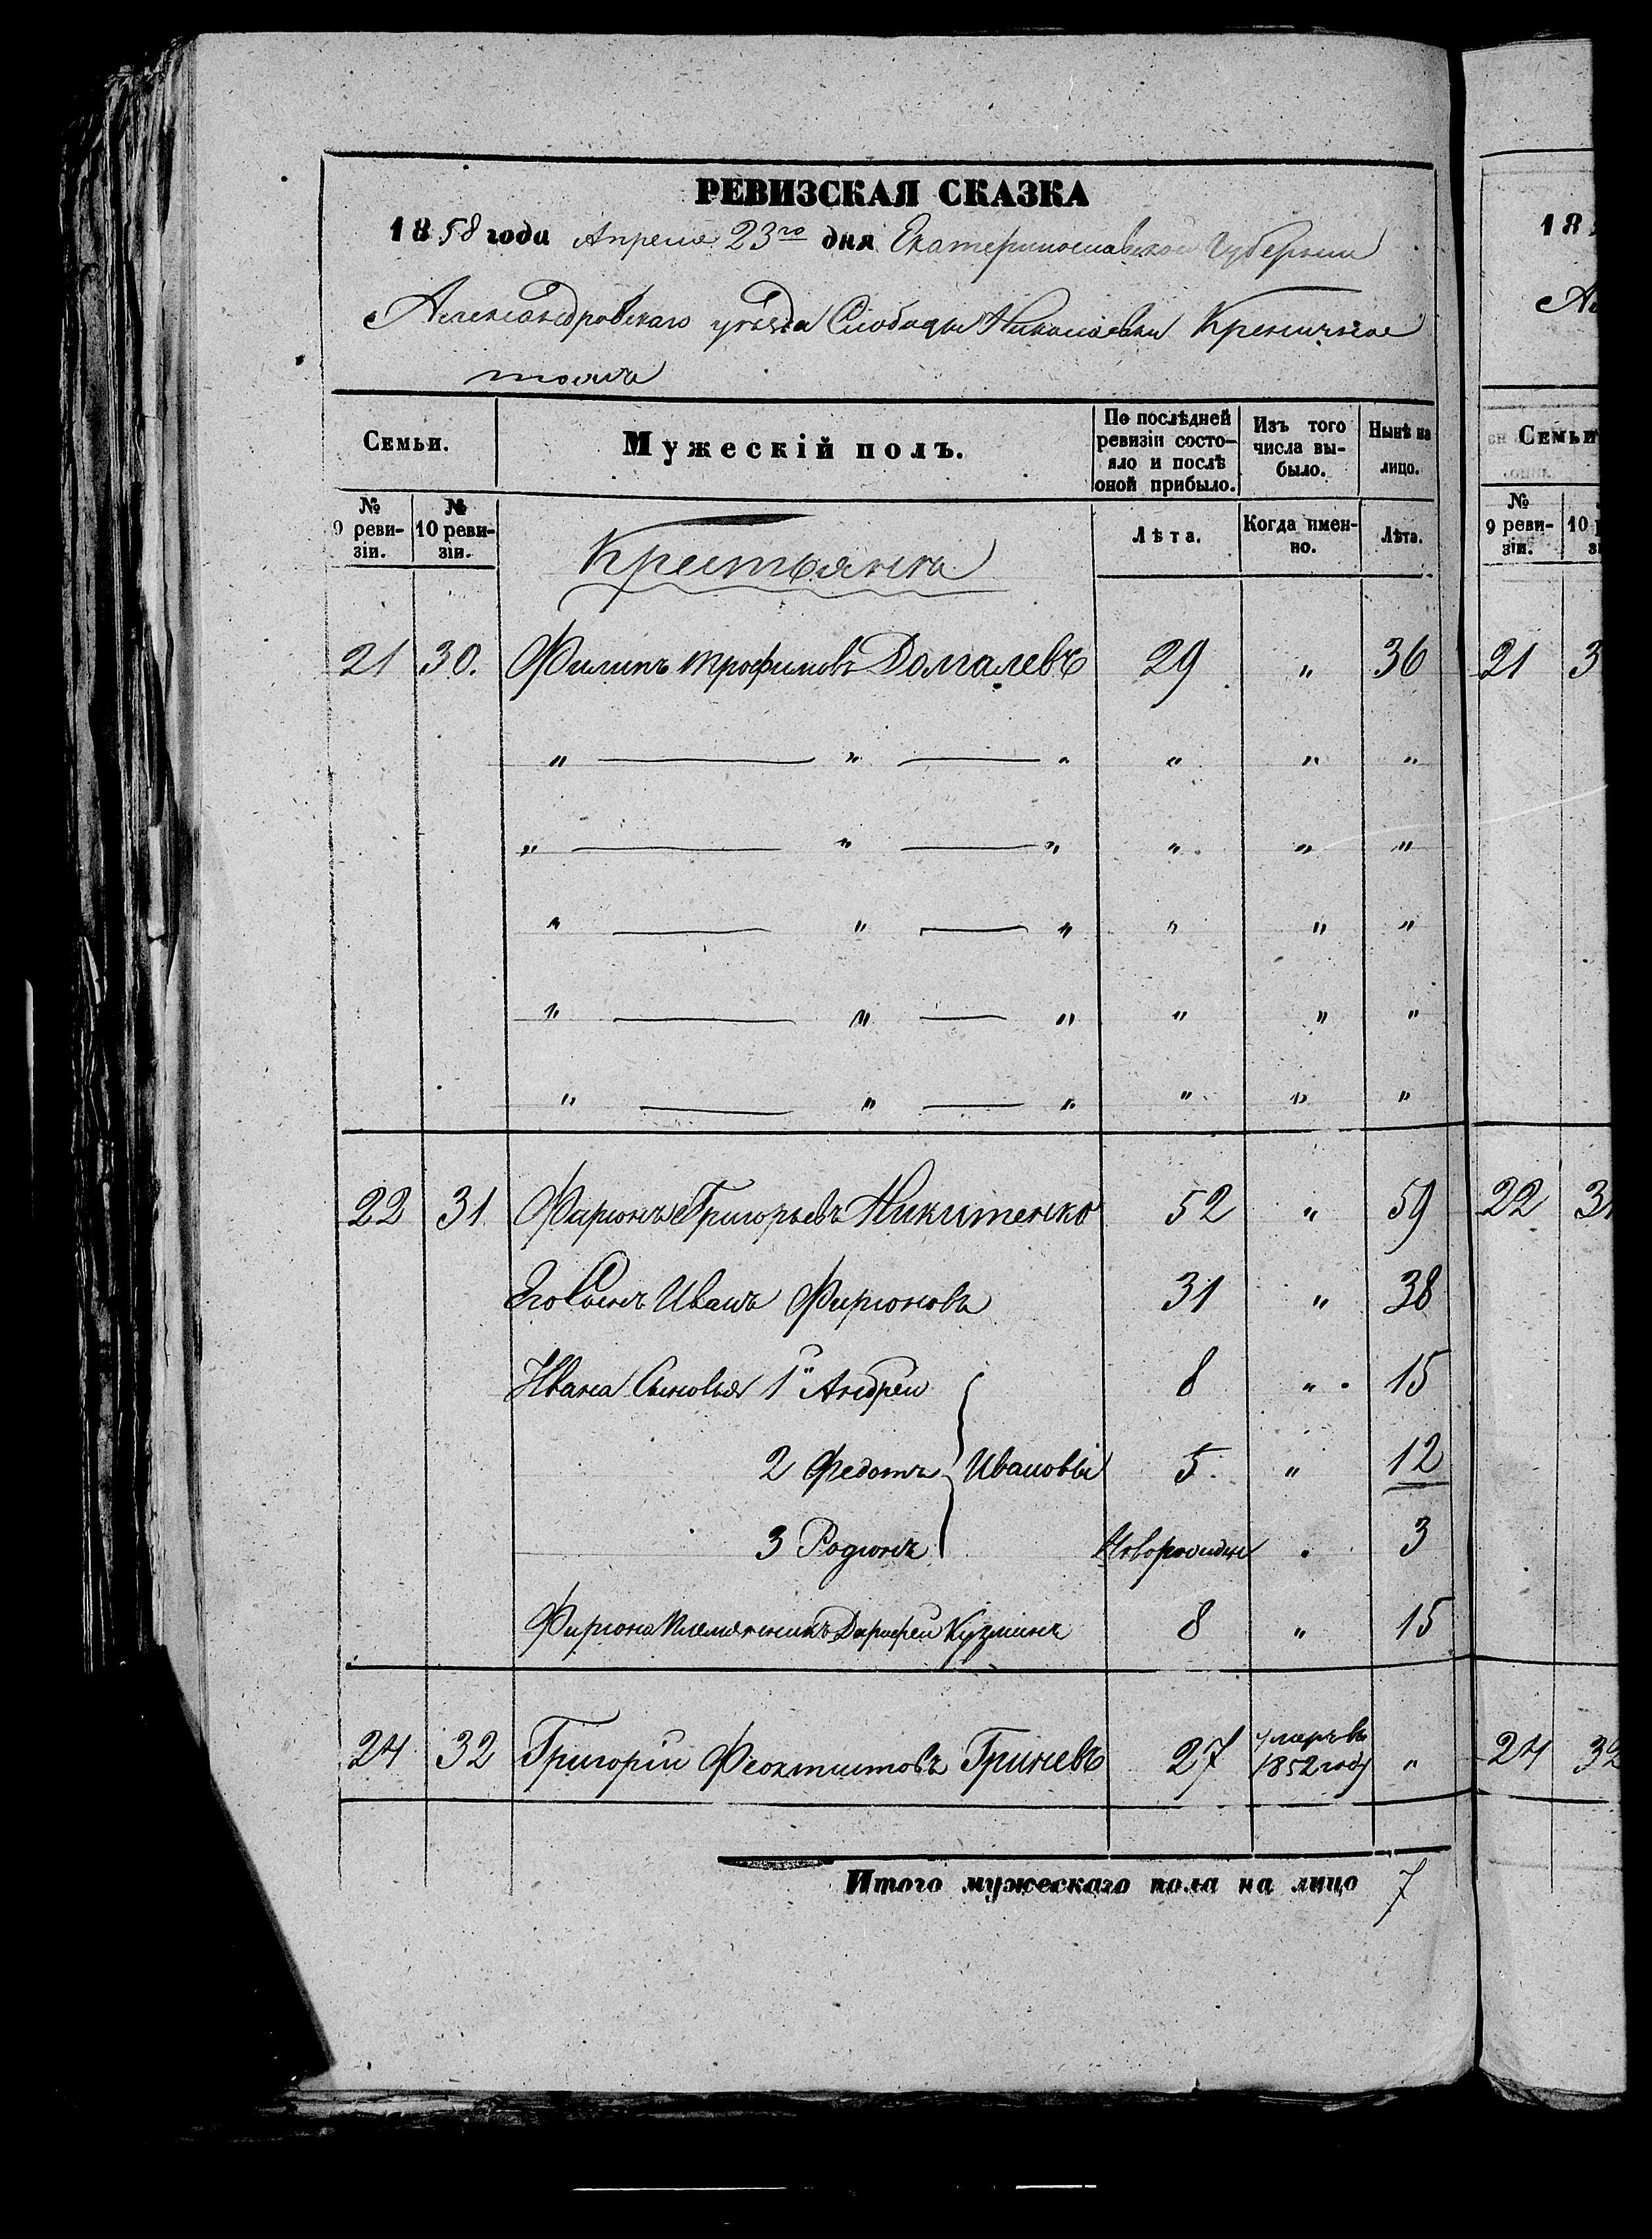 РЕВИЗСКАЯ СКАЗКА
1858 года Апреля 23го дня Екатеринославской Губернии
Александровскаго уѣзда Слободы Николаевки Криничное
тожъ
Семьи. Мужескій полъ. По послѣдней ревизіи состояло и послѣ оной прибыло. Изъ того числа выбыло. Нынѣ на лицо.
№ 9 ревизіи. № 10 ревизіи. Лѣта. Когда именно. Лѣта.
Крестьяне
21 30. Филипъ Трофимовъ Долгалевъ 29 " 36
" — " — " " " "
" — " — " " " "
" — " — " " " "
" — " — " " " "
" — " — " " " "
22 31 Фирионъ Григорьевъ Никитенко 52 " 59
Его Сынъ Иванъ Фирионовъ 31 " 38
Ивана Сыновья 1й Андрей 8 " 15
2 Федотъ Ивановы 5 " 12
3 Родионъ Новорожден 3
Фириона Племянникъ Кузминъ 8 " 15
24 32 Григорій Феоктистовъ Гриневъ 27 умеръ въ 1852 году "
Итого мужескаго пола на лицо 7
18
Ал
Семьи
№ 9 ревизіи. 10
21 3
22 31
24 32